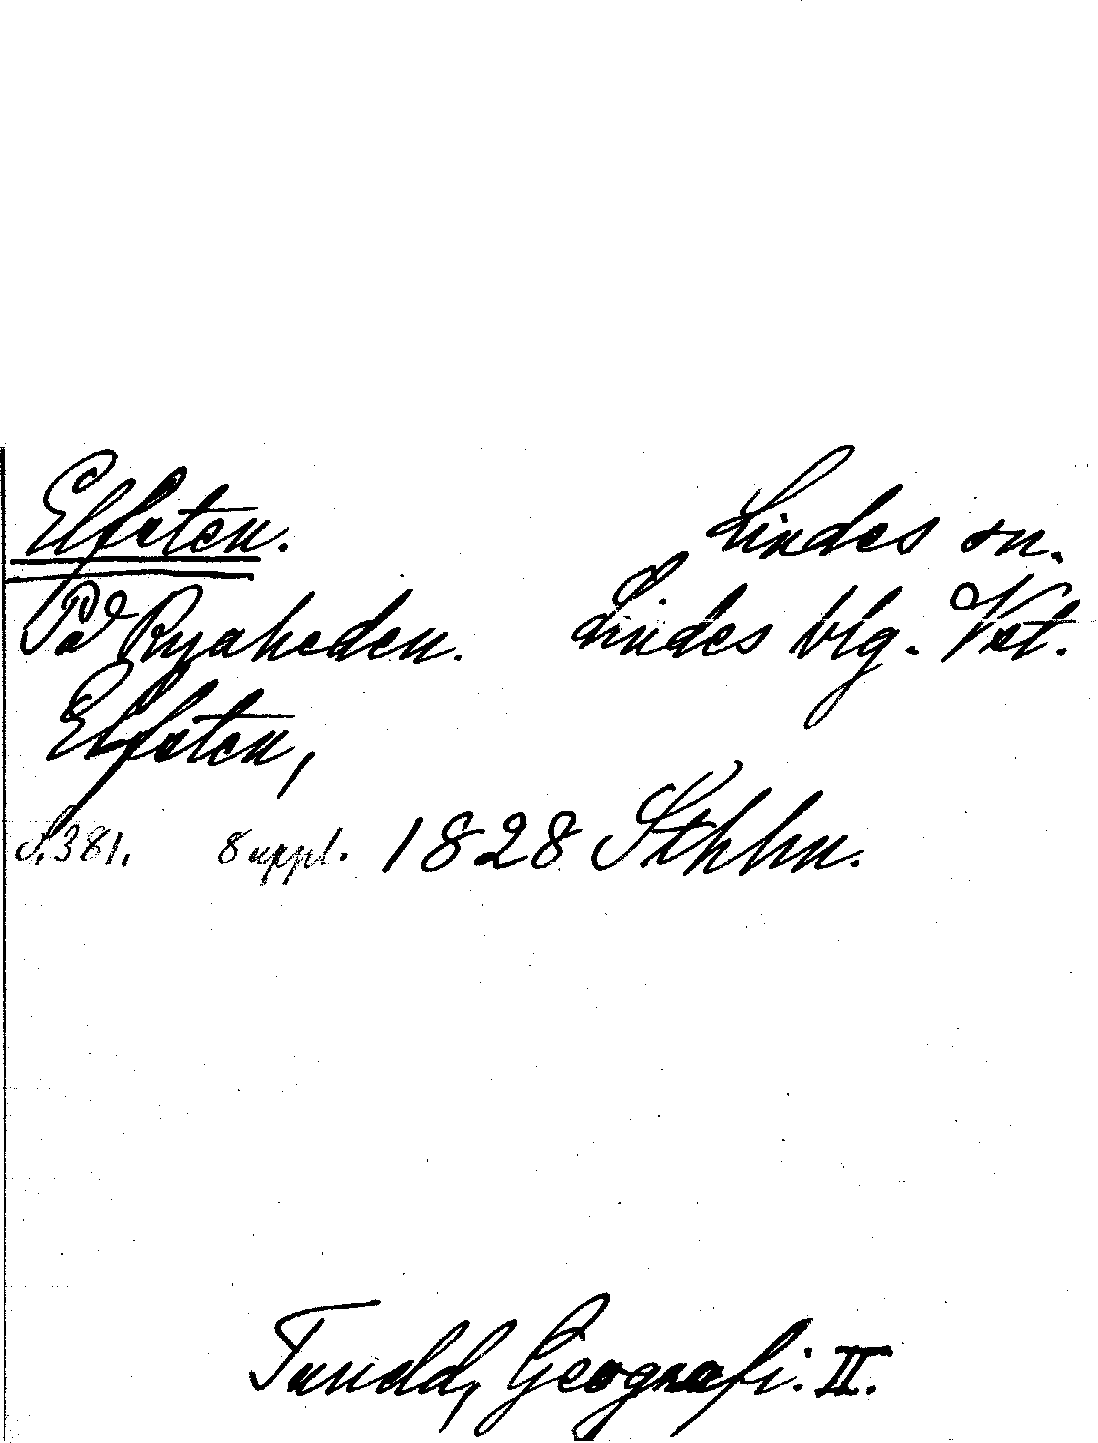 Elfsten. Lindes sn.
På Ryaheden. Lindes blg. Vstl.
Elfsten,
s. 381. 8 uppl. 1828 Sthlm.
Tuneld, Geografi. II.